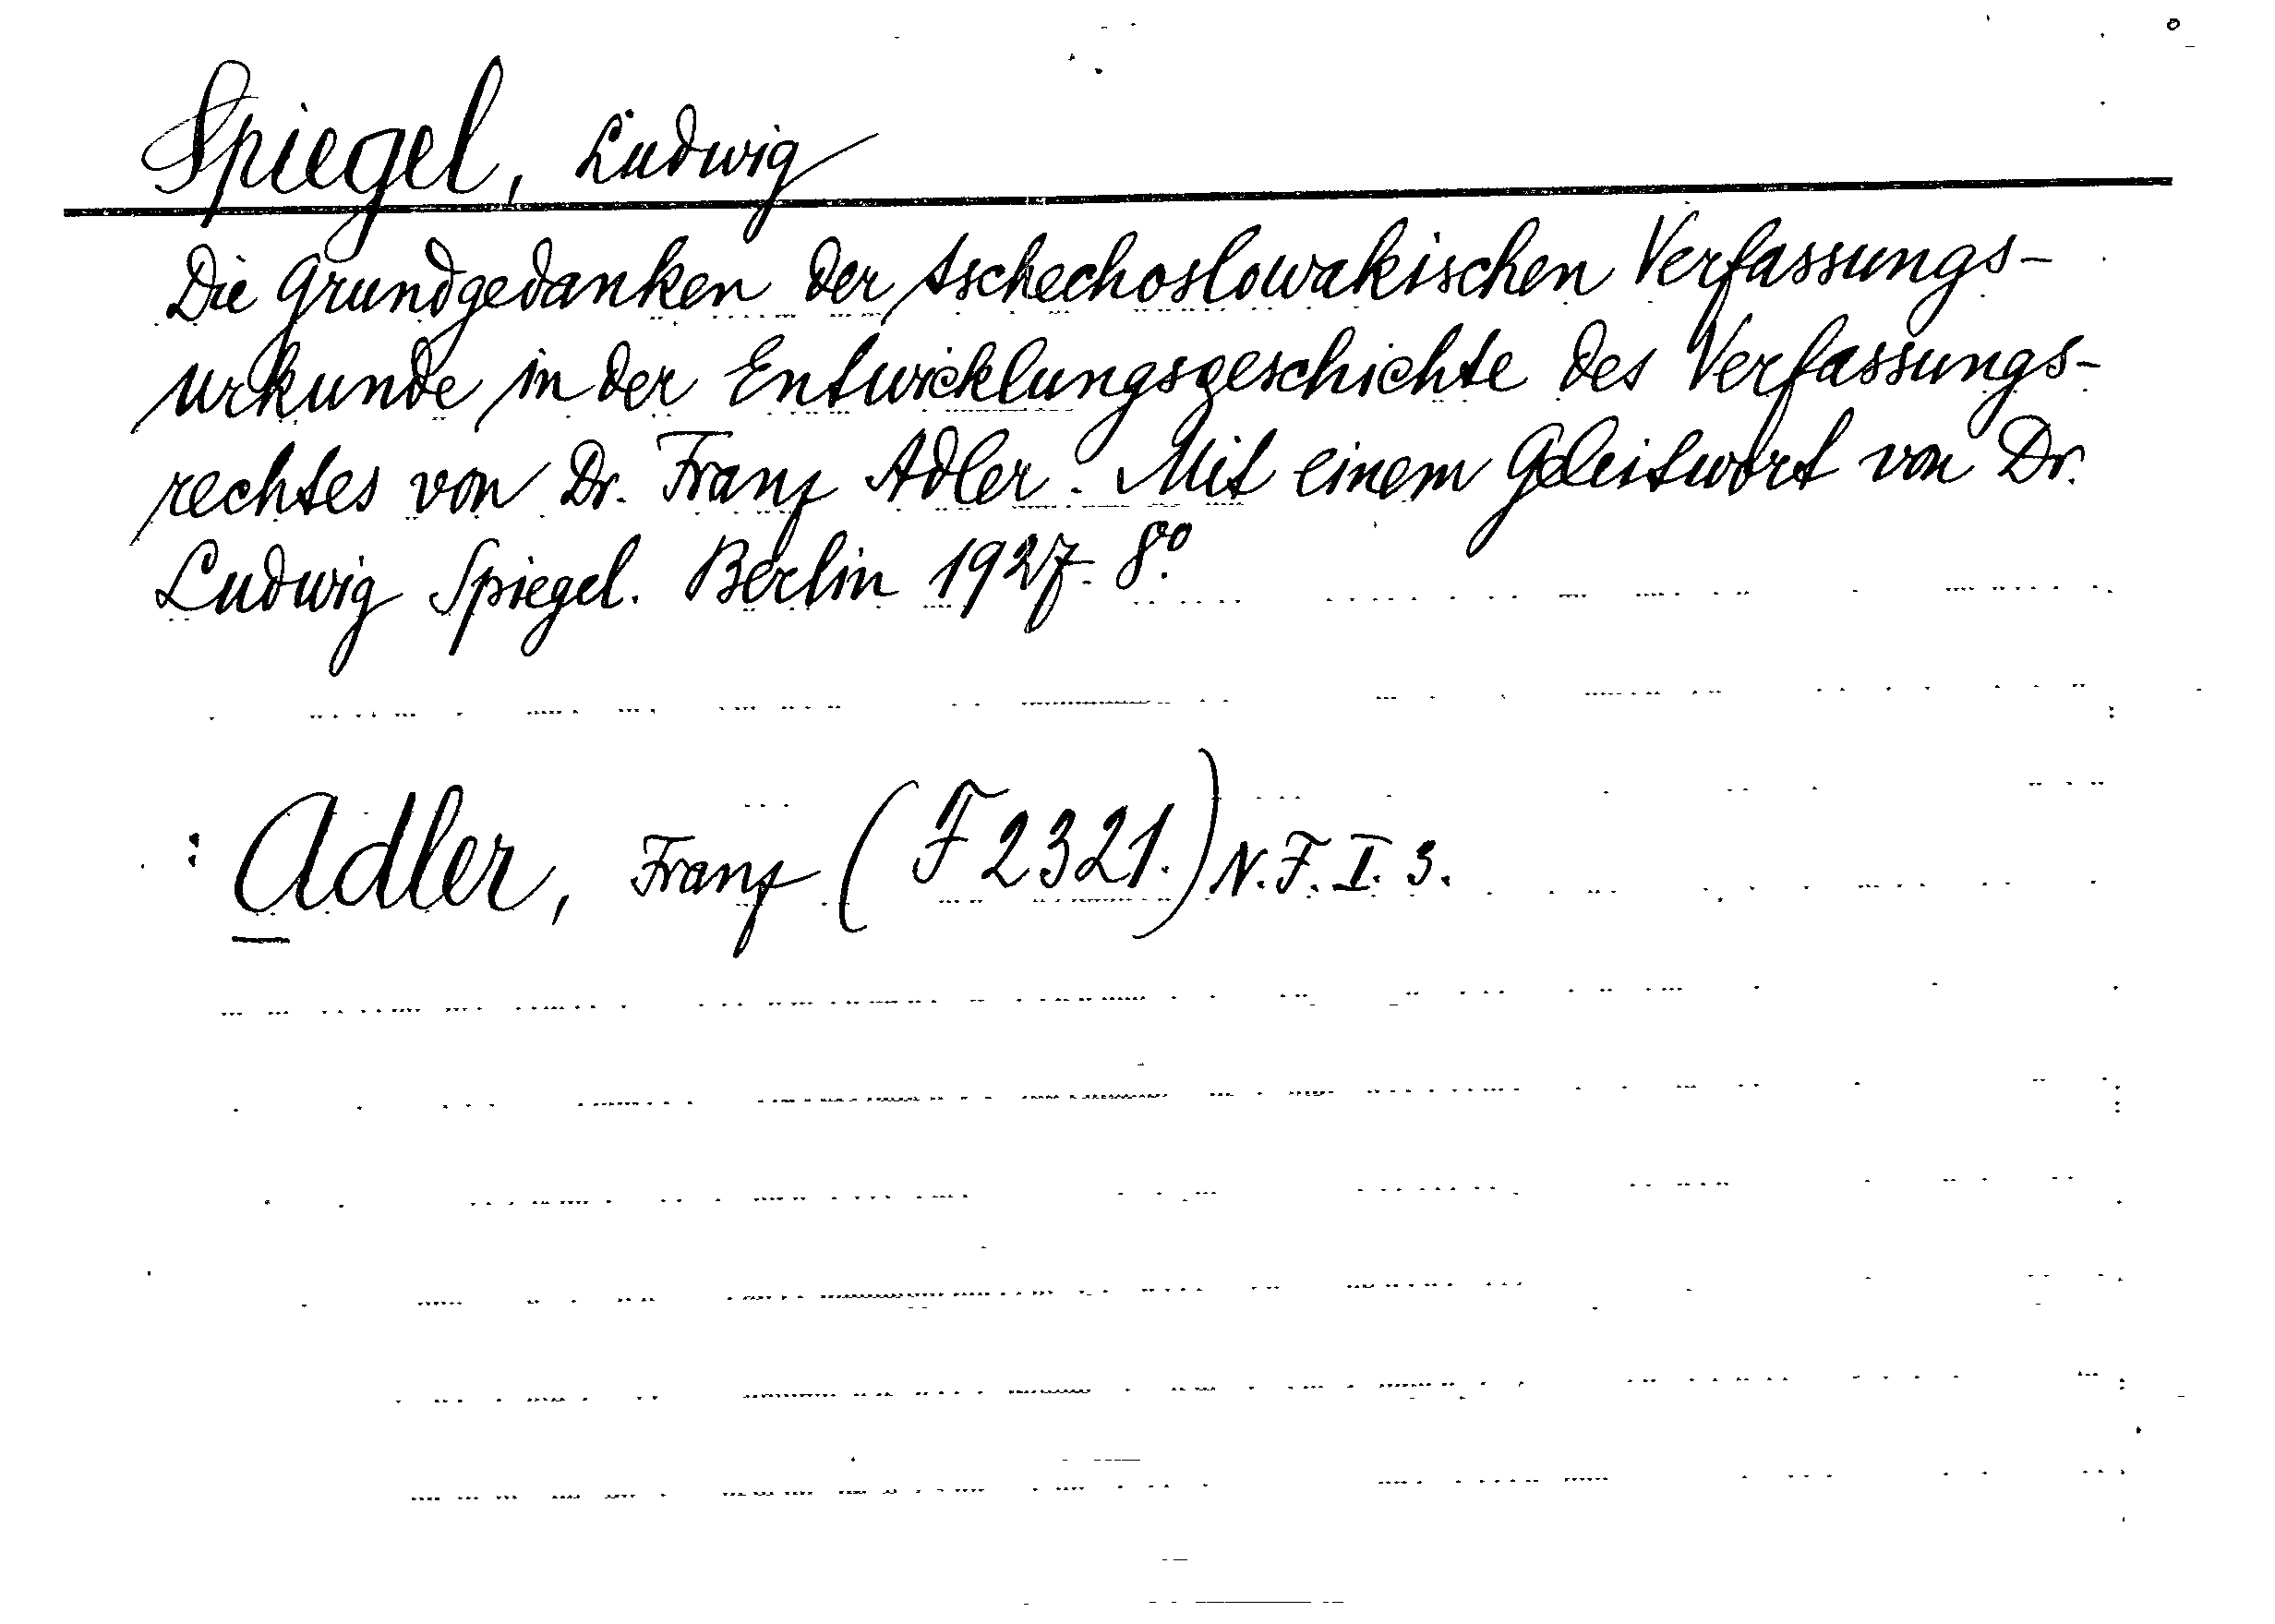 Spiegel, Ludwig
Die Grundgedanken der tschechoslowakischen Verfassungs-
urkunde in der Entwicklungsgeschichte des Verfassungs-
rechtes von Dr. Franz Adler. Mit einem Geleitwort von Dr.
Ludwig Spiegel. Berlin 1927. 8º.
: Adler, Franz (F 2321.) N.F.I. 3.